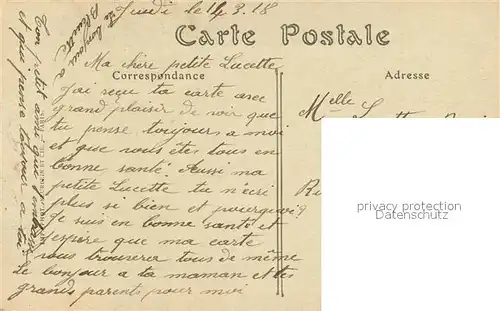 Jeudi le 14.3.18
Carte Postale
Ma chère petite Lucette
Correspondance
Adresse
J'ai reçu ta carte avec
grand plaisir de voir que
tu pense toujours a moi
et que vous êtes tous en
bonne santé. Aussi ma
petite Lucette tu n'ecri
plus si bien et pourquoi?
Je suis en bonne santé et
espère que ma carte
vous trouvera tous de même
le bonjour a ta maman et tes
grands parents pour moi
Ton petit ami qui t'embrasse
et qui pense toujours a toi
le bonjour a
Mlle
privacy protection
www.ansichtskarten-center.de